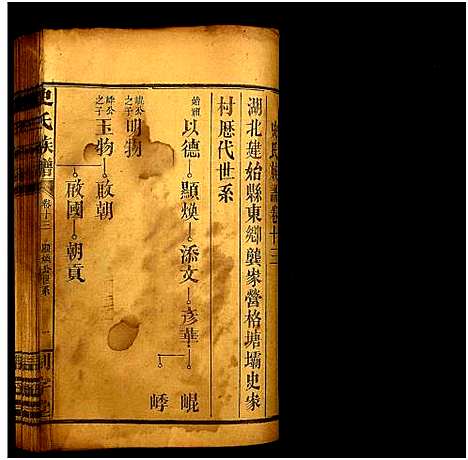 史氏族譜卷十三
湖北建始縣東鄉龔家營格塘壩史家
村歷代世系
始祖
以德 顯煥 添文 彥華 崐
嵊
崐公之子
明物
嵊公之子
玉物 啟朝
啟國 朝貢
史氏族譜 卷十三 顯煥公世系 一